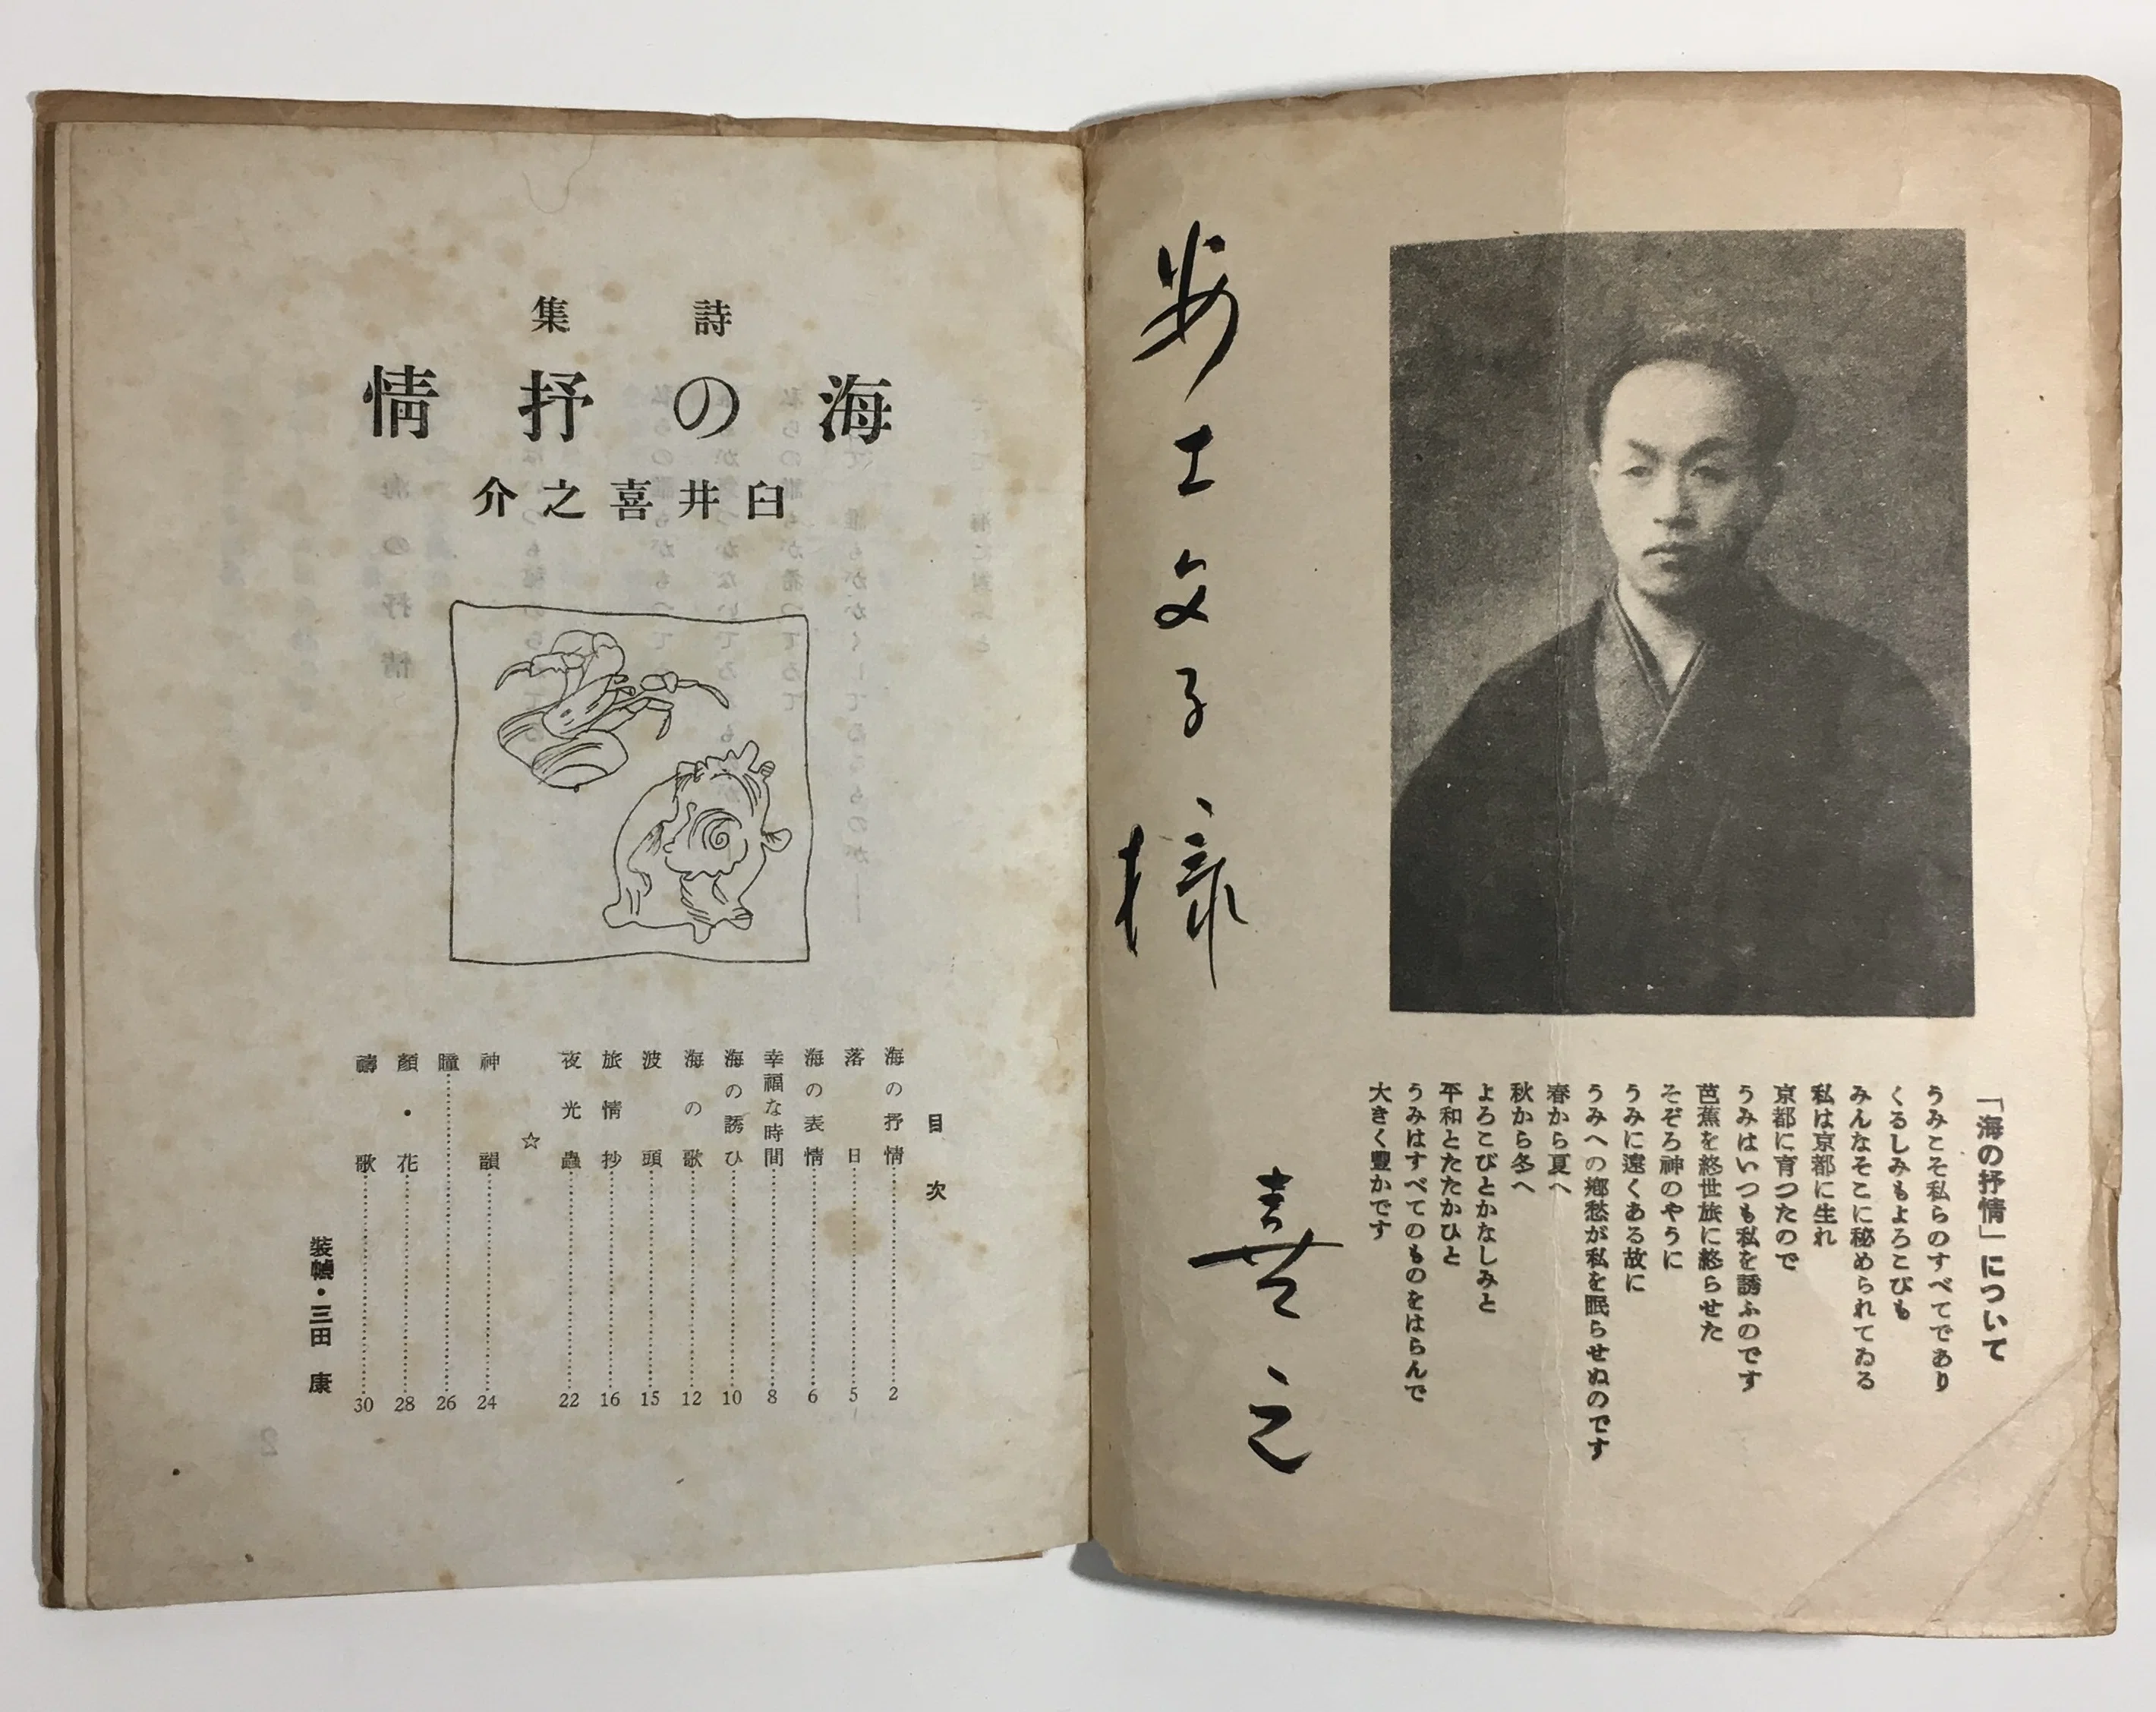 「海の抒情」について
うみこそ私らのすべてであり
くるしみもよろこびも
みんなそこに秘められてゐる
私は京都に生れ
京都に育つたので
うみはいつも私を誘ふのです
芭蕉を終世旅に終らせた
そぞろ神のやうに
うみに遠くある故に
うみへの郷愁が私を眠らせぬのです
春から夏へ
秋から冬へ
よろこびとかなしみと
平和とたたかひと
うみはすべてのものをはらんで
大きく豊かです
安土文子様
喜之
詩集
海の抒情
臼井喜之介
目次
海の抒情………2
落日………5
海の表情………6
幸福な時間………8
海の誘ひ………10
海の歌………12
波頭………15
旅情抄………16
夜光蟲………22
☆
神韻………24
瞳………26
顏・花………28
禱歌………30
裝幀・三田康